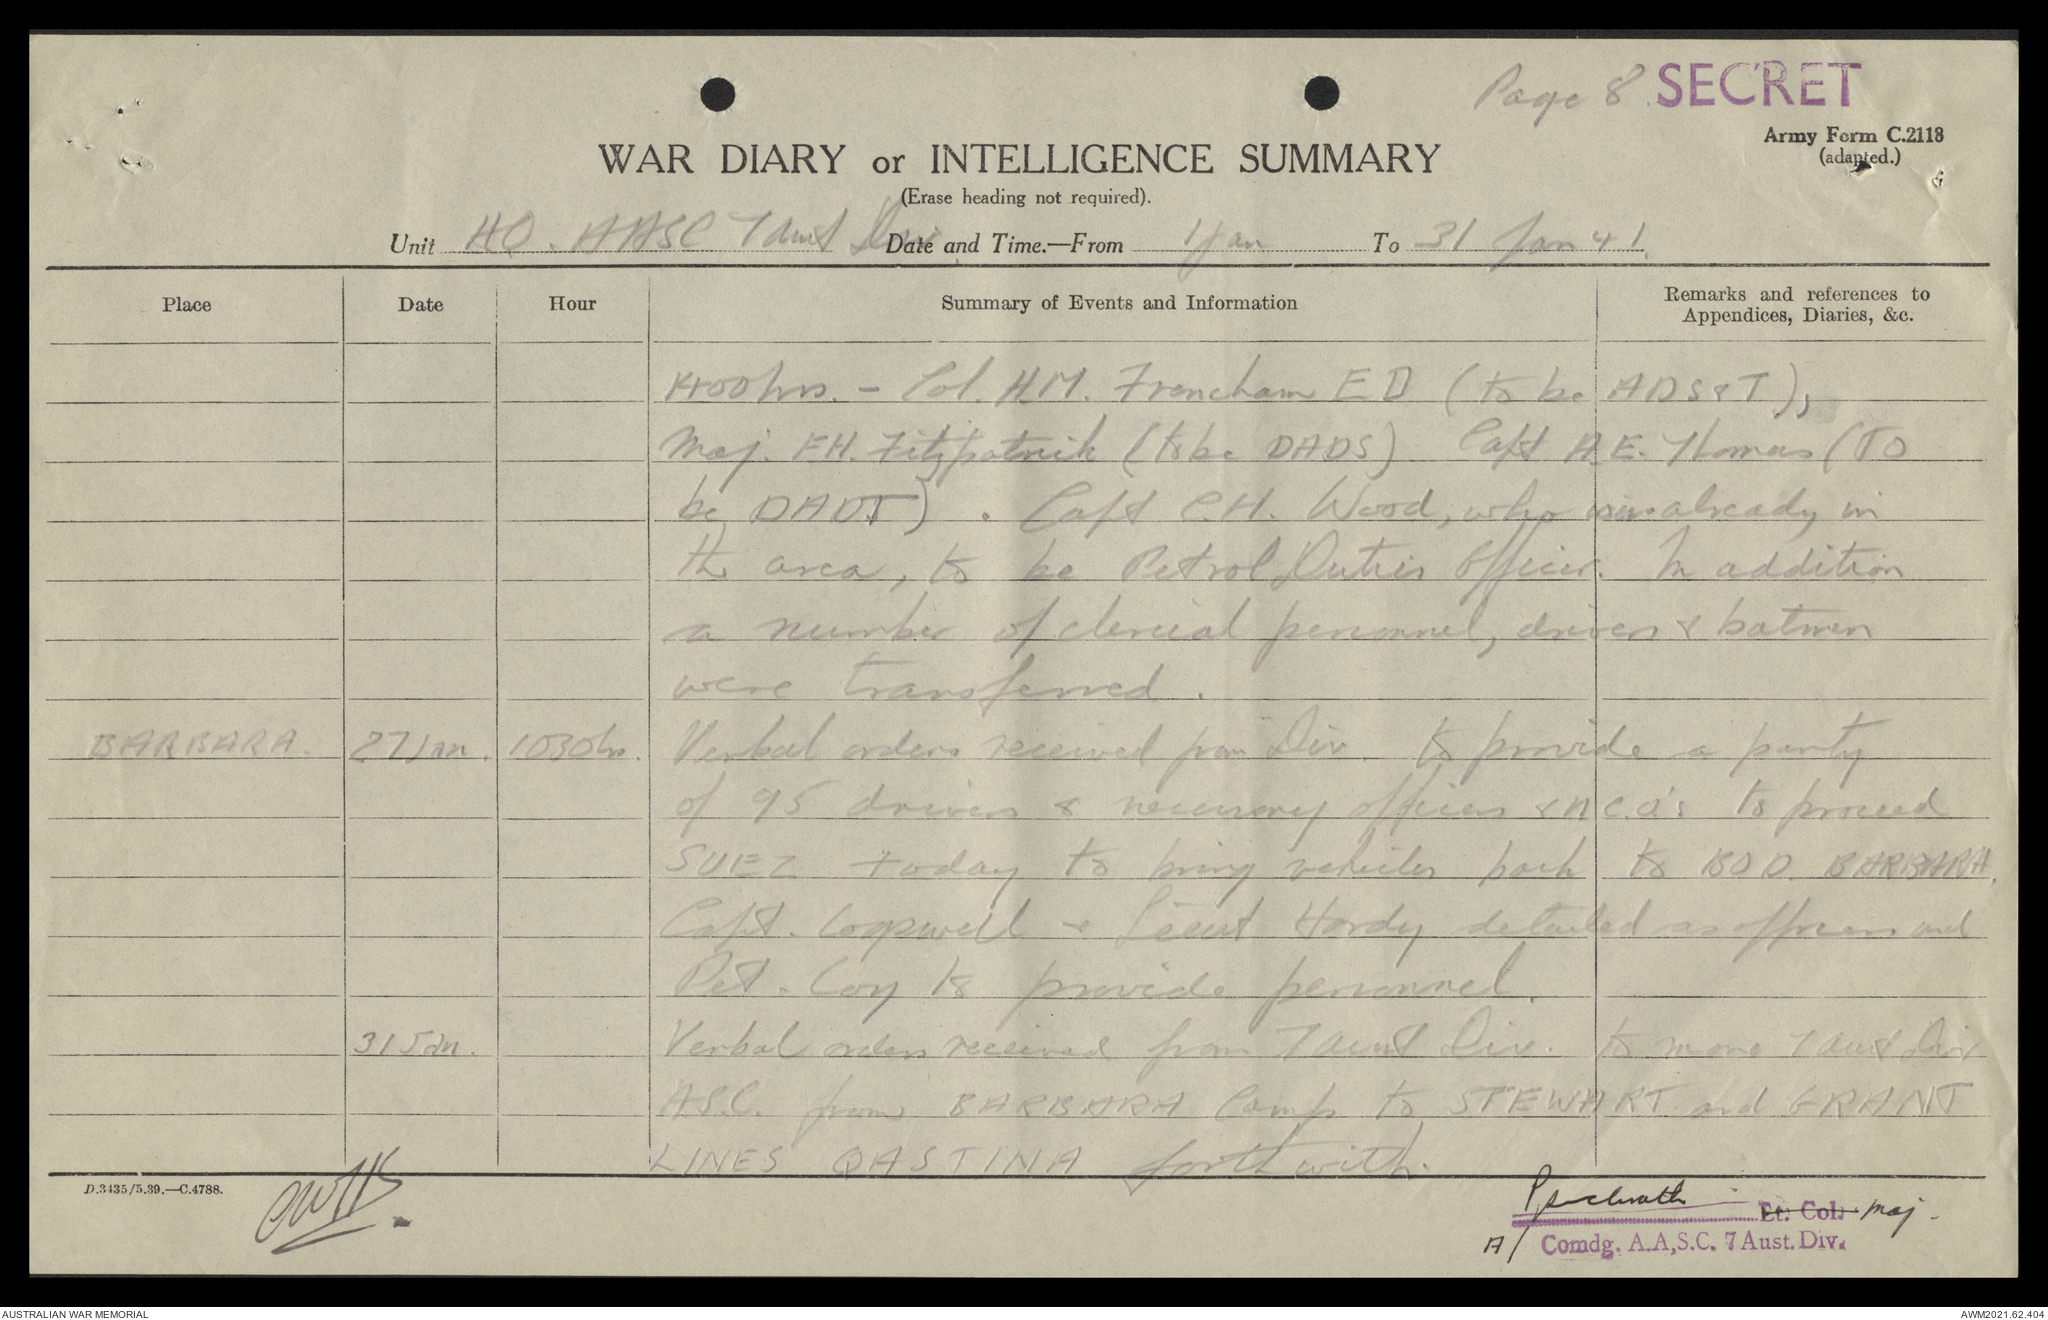 Page 8. SECRET
Army Form C.2118
(adapted.)
WAR DIARY or INTELLIGENCE SUMMARY
(Erase heading not required).
Unit HQ. AASC 7 Aust Div. Date and Time.—From 1 Jan To 31 Jan 41.
Place Date Hour Summary of Events and Information Remarks and references to
Appendices, Diaries, &c.
1400 hrs. - Col. H.M. Frencham E D (to be ADS&T),
Maj. F.H. Fitzpatrick (to be DADS) Capt A.E. Thomas (TO
be DADT). Capt C.H. Wood, who was already in
the area, to be Petrol Duties Officer. In addition
a number of clerical personnel, drivers & batmen
were transferred.
BARBARA. 27 Jan. 1030 hrs. Verbal orders received from Div. to provide a party
of 95 drivers & necessary officers & N.C.O's to proceed
SUEZ today to bring vehicles back to BOD. BARBARA.
Capt. Cogswell & Lieut Hardy detailed as officers and
Pet. Coy to provide personnel.
31 Jan. Verbal orders received from 7 Aust Div. to move 7 Aust Div
ASC. from BARBARA Camp to STEWART and GRANT
LINES QASTINA forthwith.
D.3435/5.39.—C.4788.
Lt. Col. Maj.
A/ Comdg. A.A.S.C. 7 Aust. Div.
AUSTRALIAN WAR MEMORIAL
AWM2021.62.404